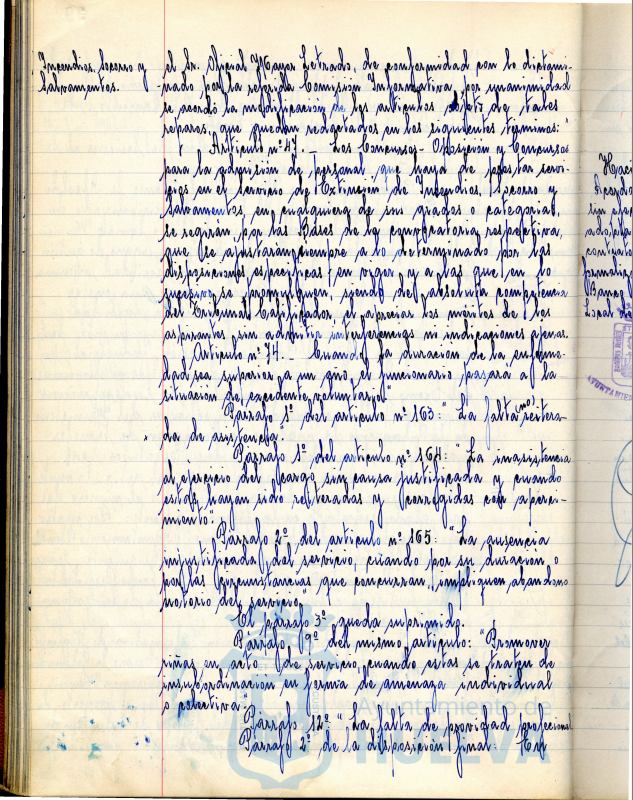 Incendios, Socorro y
Salvamentos.
el Sr. Oficial Mayor Letrado, de conformidad con lo dictami-
nado por la referida Comision Informativa, por unanimidad
se acordó la modificacion de los articulos objeto de tales
reparos, que quedan redactados en los siguientes terminos:"
Artículo nº 47. — Los Concursos-Oposicion y Concursos
para la admision de personal, que haya de prestar servi-
cios en el Servicio de Extincion de Incendios, Socorro y
Salvamentos, en cualquiera de sus grados o categorias,
se regirán, por las Bases de la convocatoria respectiva,
que se ajustarán siempre a lo determinado por las
disposiciones especificas en vigor y a las que en lo
sucesivo se promulguen, siendo de absoluta competencia
del Tribunal Calificador, el apreciar los méritos de los
aspirantes sin admitir interferencias ni indicaciones ajenas.
Articulo nº 74. — Cuando la duracion de la enferme-
dad sea superior a un año, el funcionario pasará a la
situacion de excedente voluntario."
Párrafo 1º del articulo nº 163: "La falta (no) reitera-
da de asistencia".
Párrafo 1º del articulo nº 164: "La inasistencia
al ejercicio del cargo sin causa justificada y cuando
estas hayan sido reiteradas y corregidas con aperci-
miento".
Párrafo 2º del articulo nº 165: "La ausencia
injustificada del servicio, cuando por su duracion o
por las circunstancias que concurran, impliquen abandono
notorio del servicio".
El párrafo 3º queda suprimido.
Párrafo 9º del mismo articulo: "Promover
riñas en acto de servicio, cuando estas se traten de
insubordinacion en forma de amenaza individual
o colectiva.
Párrafo 12º "La falta de probidad profesional
Párrafo 2º de la disposicion final: "En
Ayuntamiento de
HUELVA
Haci
Acordo
sin efec
adopta
contrato
Banco
Local de
AYUNTAMIEN